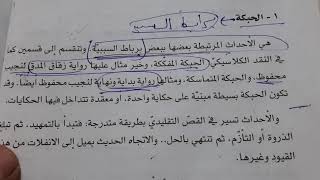 برابط السببية
١ - الحبكة
هي الأحداث المرتبطة بعضها ببعض برباط السببية وتنقسم إلى قسمين كما
في النقد الكلاسيكي الحبكة المفككة، وخير مثال عليها رواية زقاق المدق لنجيب
محفوظ، والحبكة المتماسكة ومثالها رواية بداية ونهاية لنجيب محفوظ أيضًا. وقد
تكون الحبكة بسيطة مبنيّة على حكاية واحدة، أو معقدة تتداخل فيها الحكايات.
والأحداث تسير في القصّ التقليديّ بطريقة متدرجة: فتبدأ بالتمهيد، ثم تبلغ
الذروة أو التأزّم، ثم تنتهي بالحل.. والاتجاه الحديث يميل إلى الانفلات من هذه
القيود وغيرها.